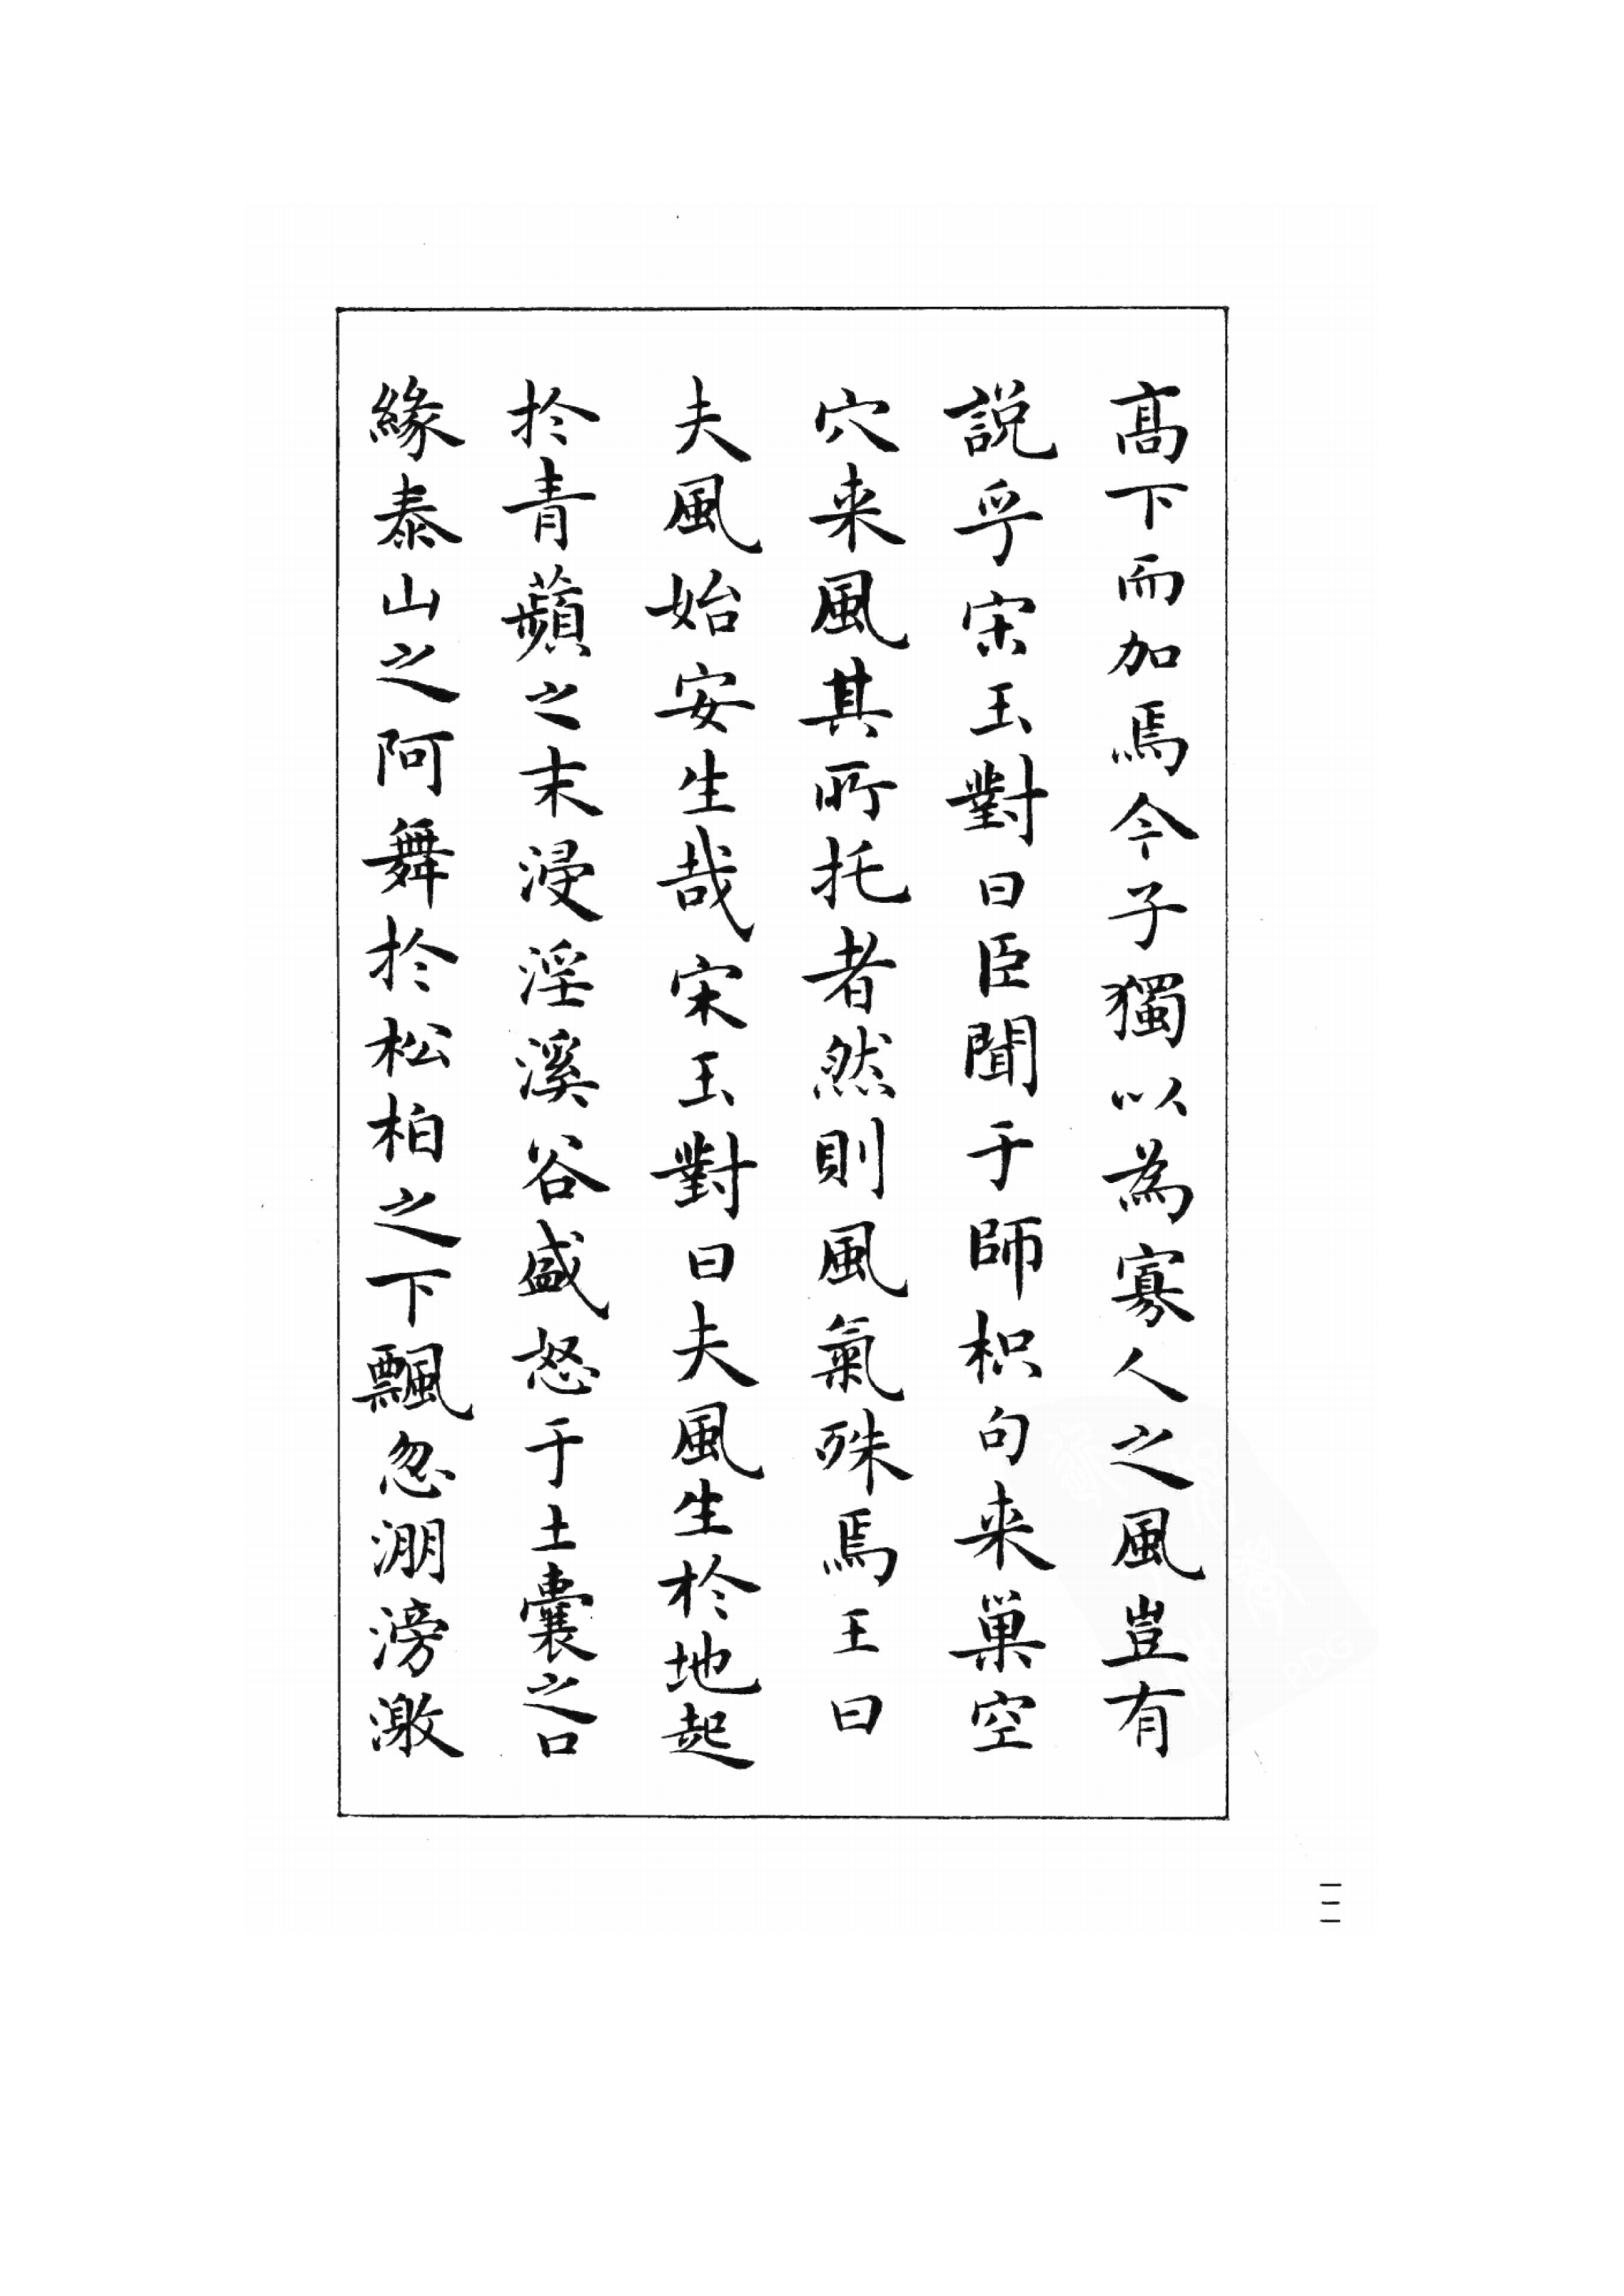 高下而加焉今子獨以為寡人之風豈有
説乎宋玉對曰臣聞于師枳句来巢空
穴来風其所托者然則風氣殊焉王曰
夫風始安生哉宋玉對曰夫風生於地起
於青蘋之末浸淫溪谷盛怒于土囊之口
緣泰山之阿舞於松柏之下飄忽淜滂激